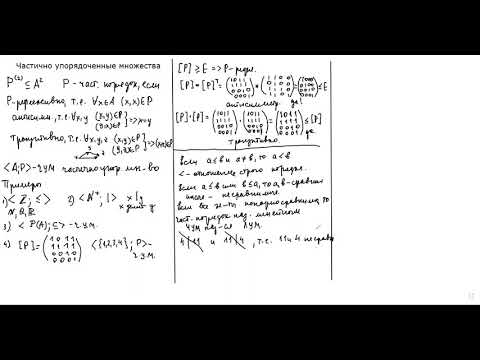 Частично упорядоченные множества
P⁽²⁾ ⊆ A²   P - част. порядок, если
P - рефлексивно, т.е. ∀x∈A (x,x)∈P
антисим., т.е. ∀x,y (x,y)∈P (y,x)∈P ] => x=y
Транзитивно, т.е. ∀x,y,z (x,y)∈P (y,z)∈P ] => (x,z)∈P
<A;P> - чум частично упор. мн-во
Примеры
1) <ℤ; ≤>   2) <ℕ⁺; |>   x|y
ℕ, ℚ, ℝ   x делит y
3) <P(A); ⊆> - ч.у.м.
4) [P] = (1011 1111 0010 0001)   <{1,2,3,4}; P> -
ч.у.м.
[P] ≥ E => P - рефл.
[P] * [P]ᵀ = (1011 1111 0010 0001) * (1100 0100 1110 1101) = ≤ E
антисиммет. да!
[P]·[P] = (1011 1111 0010 0001) · (1011 1111 0010 0001) = ≤ [P]
транзитивно да
если a ≤ b и a ≠ b, то a < b
< - отношение строго порядка.
Если a ≤ b или b ≤ a, то a, b - сравнимые
иначе - несравнимые
если все эл-ты попарно сравнимы, то
част. порядок наз. линейным
ЧУМ наз-ся ЛУМ.
4 | 11 и 11 | 4, т.е. 11 и 4 несравн.